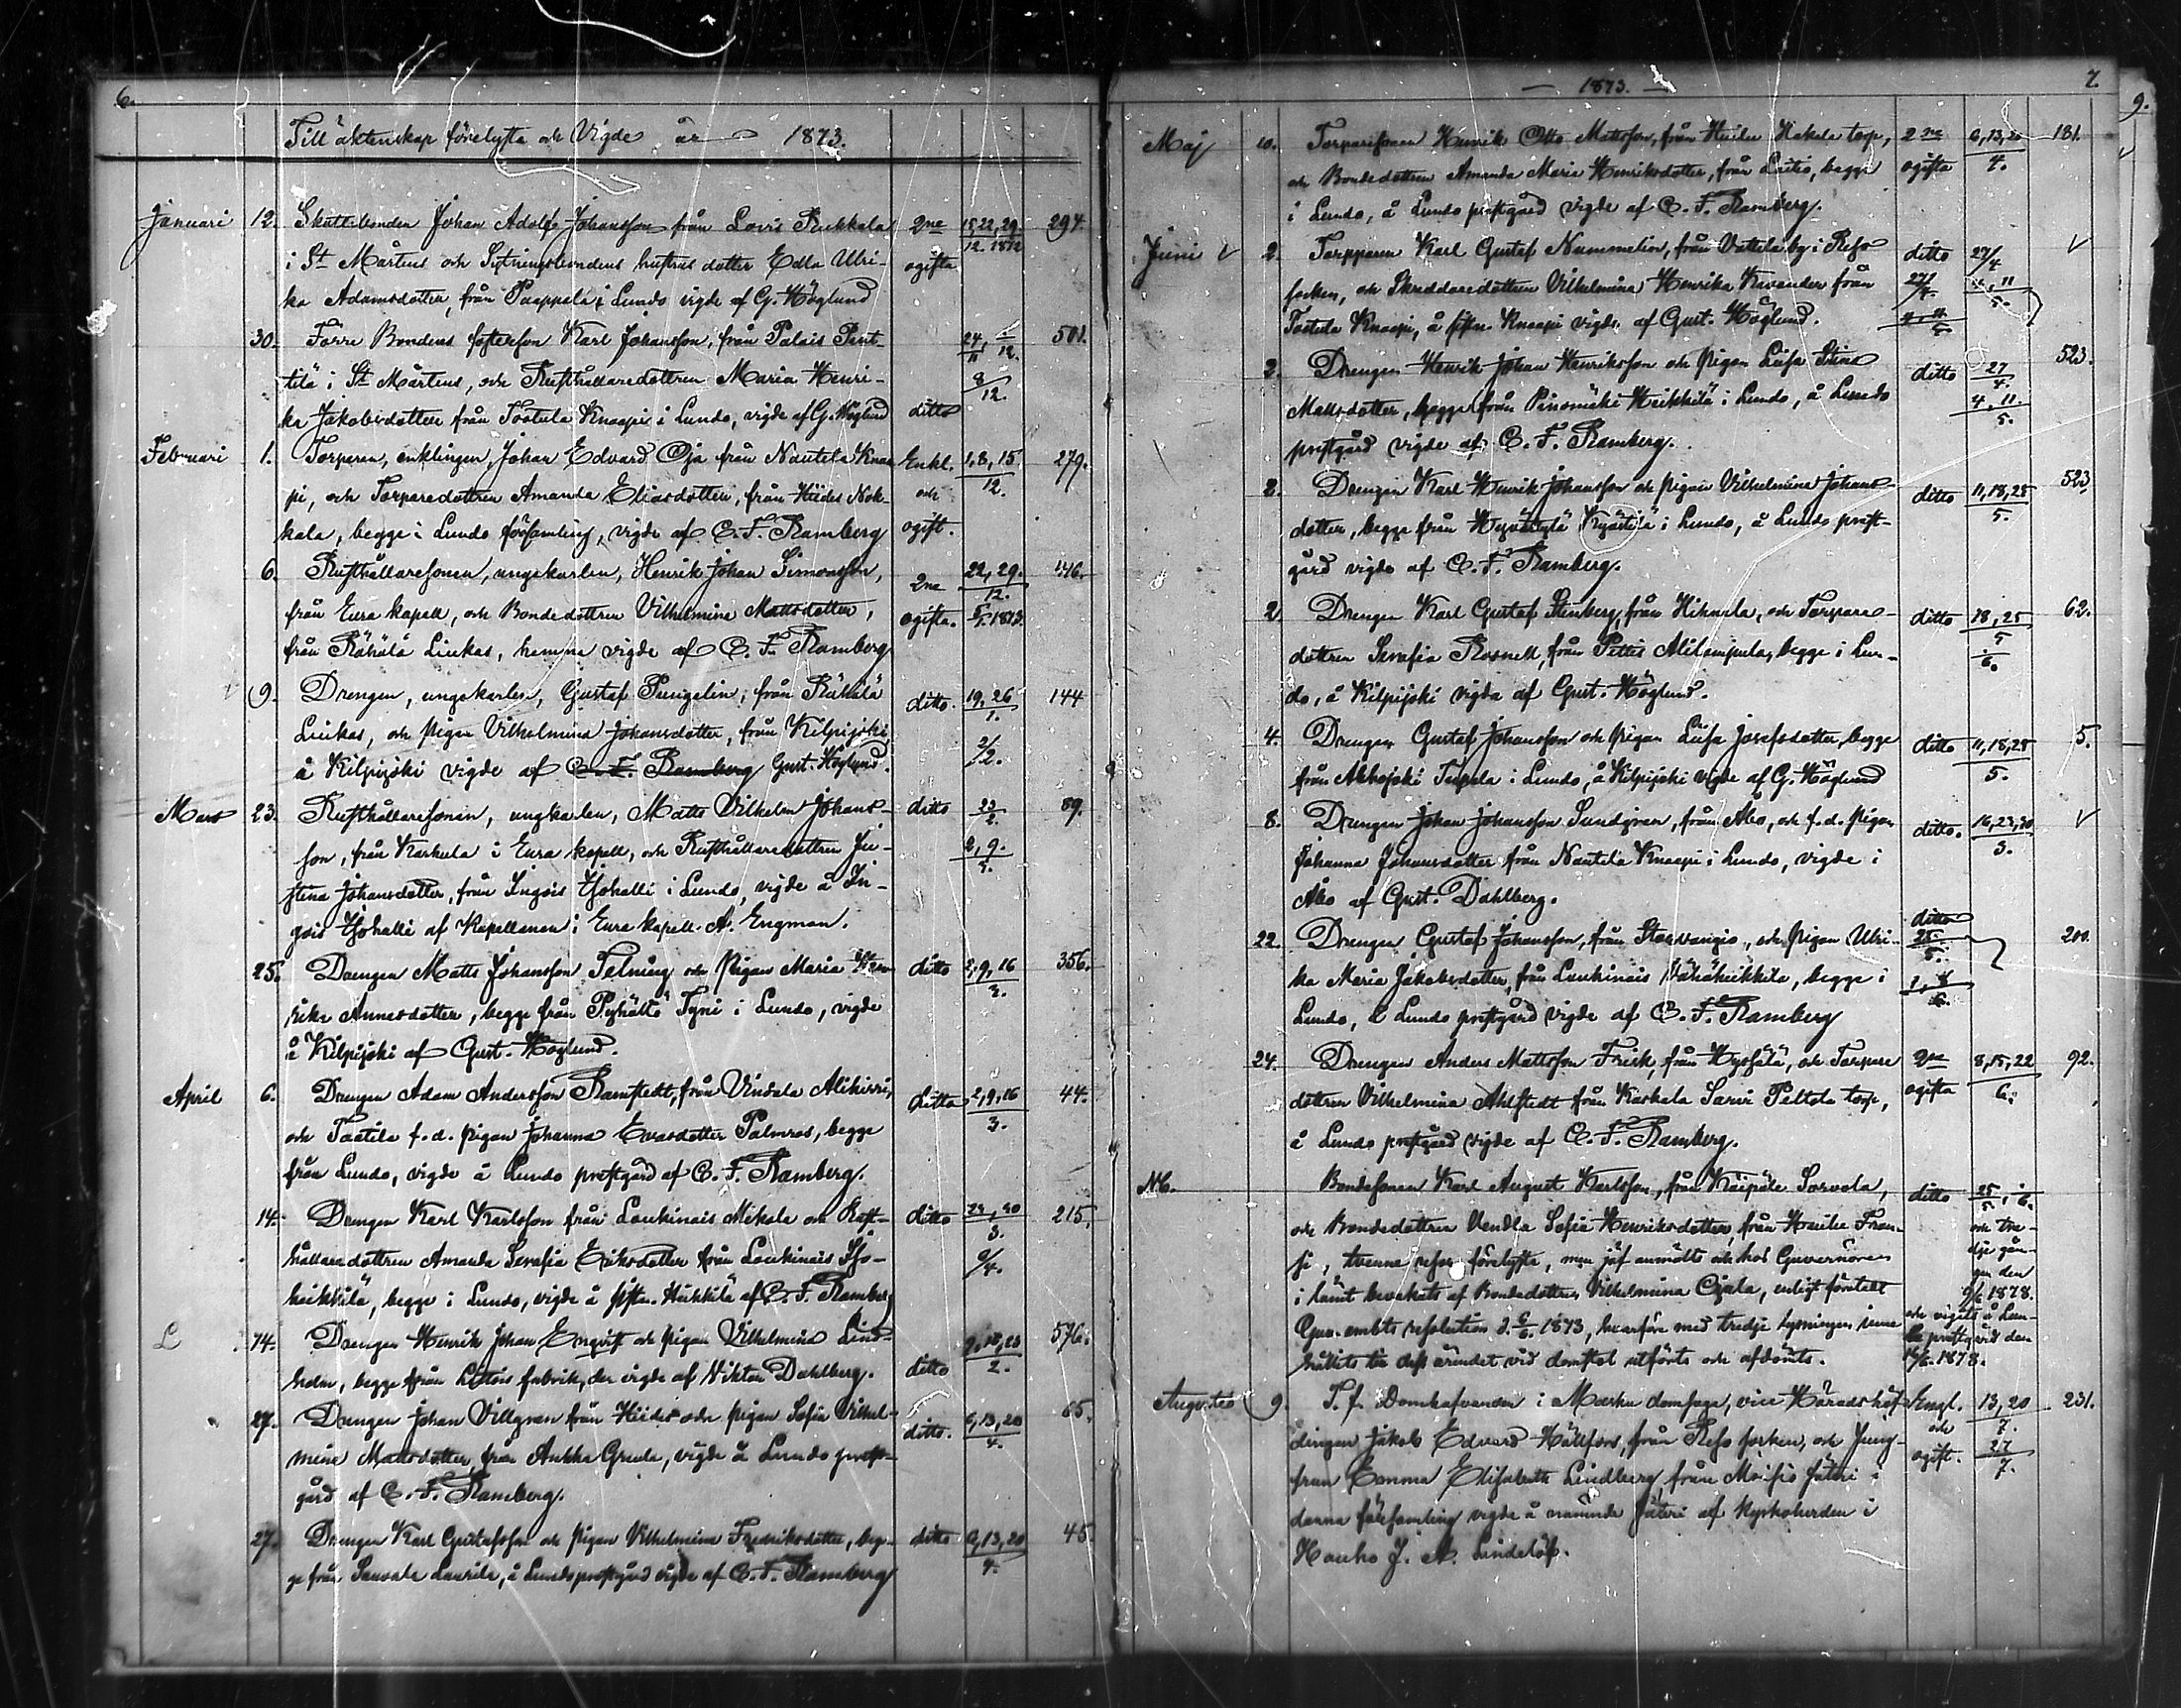 6.
Till äktenskap förelysta och Vigde år 1873.
Januari 12. Skattebonden Johan Adolf Johansson från Lovis Pukkala 2ne 15, 22, 29 294.
i St Mårtens och Sytningsbondens hustrus dotter Edla Ulri- ogifta 12. 1872
ka Adamsdotter, från Paappala i Lundo vigde af G. Höglund
30. Förre Bondens fosterson Karl Johansson, från Palais Pent- 24/11, 1/12. 501.
tilä i St Mårtens, och Rusthållaredottren Maria Henri- 8/12.
ka Jakobsdotter från Tortula Knaapi i Lundo, vigde af G. Höglund ditto
Februari 1. Torparen, enklingen, Johan Edvard Oja från Nautela Knaa Enkl. 1, 8, 15. 279.
pi, och Torparedottren Amanda Eliasdotter, från Hiides Nok- och 12.
kala, begge i Lundo församling, vigde af C. F. Ramberg ogift.
6. Rusthållaresonen, ungekarlen, Henrik Johan Simonsson, 2ne 22, 29. 146.
från Eura kapell, och Bondedottren Vilhelmina Mattsdotter, ogifta. 12. 5/1. 1873.
från Rähälä Liukas, hemma vigde af C. F. Ramberg
9. Drengen, ungekarlen, Gustaf Pungelin, från Rähälä ditto. 19, 26 144
Liukas, och Pigan Vilhelmina Johansdotter, från Kilpijoki, 1.
å Kilpijoki vigde af C. F. Ramberg Gust. Höglund. 2/2.
Mars 23. Rusthållaresonen, ungkarlen, Matts Vilhelm Johans- ditto 23/2. 89.
son, från Karkula i Eura kapell, och Rusthållaredottren Ju- 2, 9.
stina Johansdotter, från Ingois Isohalli i Lundo, vigde å In- 3.
gois Isohalli af Kapellanen i Eura kapell. A. Engman.
25. Drengen Matts Johansson Telning och Pigan Maria Hen- ditto 2, 9, 16 356.
rika Annasdotter, begge från Pyhältö Tyni i Lundo, vigde 3.
å Kilpijoki af Gust. Höglund.
April 6. Drengen Adam Andersson Ramstedt, från Vindala Alikirri, ditto 2, 9, 16 44.
och Taatila f. d. pigan Johanna Evasdotter Palmros, begge 3.
från Lundo, vigde å Lundo prestgård af C. F. Ramberg.
14. Drengen Karl Karlsson från Loukinais Mikola och Rust- ditto 23, 30 215.
hållaredottren Amanda Serafia Eriksdotter från Loukinais Iso- 3.
heikkilä, begge i Lundo, vigde å sistn. Heikkilä af C. F. Ramberg 6/4.
L 14. Drengen Henrik Johan Engvist och pigan Vilhelmina Lind- 9, 16, 23 576.
holm, begge från Littois fabrik, der vigde af Viktor Dahlberg. ditto 2.
27. Drengen Johan Villgren från Hiides och Pigan Sofia Vilhel- ditto. 6, 13, 20 65.
mina Mattsdotter, från Ankka Greula, vigde å Lundo prest- 4.
gård af C. F. Ramberg.
27. Drengen Karl Gustafsson och Pigan Vilhelmina Fredriksdotter, beg- ditto 6, 13, 20 45.
ge från Sauvala Laurila, å Lundo prestgård vigde af C. F. Ramberg 4.
1873. 7.
9.
Maj 10. Torparesonen Henrik Otto Mattsson, från Hiides Hakala torp, 2ne 6, 13, 20 181.
och Bondedottren Amanda Maria Henriksdotter, från Laitis, begge ogifta 4.
i Lundo, å Lundo prestgård vigde af C. F. Ramberg.
Juni V 2. Torpparen Karl Gustaf Nummelin, från Vattela by i Reso ditto 27/4 V
socken, och Skreddaredottren Vilhelmina Henrika Kavander från 27/4. 4, 11
Tortula Knaapi, å sistn. Knaapi vigde af Gust. Höglund. 4, 11/5 5.
2. Drengen Henrik Johan Henriksson och Pigan Lisa Stina ditto 27/4. 523.
Mattsdotter, begge från Pinomäki Heikkilä i Lundo, å Lundo 4, 11.
prestgård vigde af C. F. Ramberg. 5.
2. Drengen Karl Henrik Johansson och Pigan Vilhelmina Johans- ditto 11, 18, 25 523.
dotter, begge från Hyvästylä Kyästilä i Lundo, å Lundo prest- 5.
gård vigde af C. F. Ramberg.
2. Drengen Karl Gustaf Stenberg, från Hihnala, och Torpare- ditto 18, 25 62.
dottren Serafia Rosnell, från Pettis Alitupula, begge i Lun- 5 1/6.
do, å Kilpijoki vigda af Gust. Höglund.
4. Drengen Gustaf Johansson och Pigan Lisa Josefsdotter, begge ditto 11, 18, 25 5.
från Akhojoki Tupala i Lundo, å Kilpijoki vigde af G. Höglund 5.
8. Drengen Johan Johansson Sundgren, från Åbo, och f. d. Pigan ditto. 16, 23, 30 V
Johanna Johansdotter från Nautela Knaapi i Lundo, vigde i 3.
Åbo af Gust. Dahlberg.
22. Drengen Gustaf Johansson, från Storvangio, och Pigan Ulri- ditto 25/5. 200.
ka Maria Jakobsdotter, från Loukinais Vähäheikkilä, begge i 1, 8
Lundo, å Lundo prestgård vigde af C. F. Ramberg 6.
24. Drengen Anders Mattsson Frisk, från Hypöilä, och Torpare 2ne 8, 15, 22 92.
dottren Vilhelmina Ahlstedt från Kaskala Sarvi Peltola torp, ogifta 6.
å Lundo prestgård vigde af C. F. Ramberg.
NB. Bondesonen Karl August Karlsson, från Käipäle Sorvala, ditto 25/5. 1/6.
och Bondedottren Vendla Sofia Henriksdotter, från Haulie Fran- och tre-
si, tvenne resor förelysta, men jäf anmäldt och hos Guvernören dje gån-
i länet bevakats af Bondedottren Vilhelmina Ojala, enligt företedt gen den 9/6 1878.
Guv. embts resolution d. 6/6. 1873, hvarföre med tredje lysningen inne och vigde å Lun-
hållits till dess ärendet vid domstol utförts och afdömts. do prestg. vid den 14/6. 1878.
Augusti 9. T. f. Domhafvanden i Masku domsaga, vice Häradshöf- Engl. 13, 20 231.
dingen Jakob Edvard Hällfors, från Reso socken, och Jung- och 7.
frun Emma Elisabeth Lindberg, från Moisio säteri i ogift. 27/7.
denna församling vigde å nämnde säteri af Kyrkoherden i
Hauho J. A. Lindelöf.